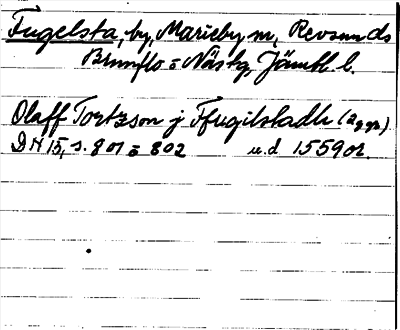 Fugelsta, by, Marieby sn, Revsunds
Brunflo o Näs tg, Jämtl. l.
Olaff Tortzson j Ffugilstadh (2 ggr)
DN 15, s. 801 o 802 u.d 1559 or.